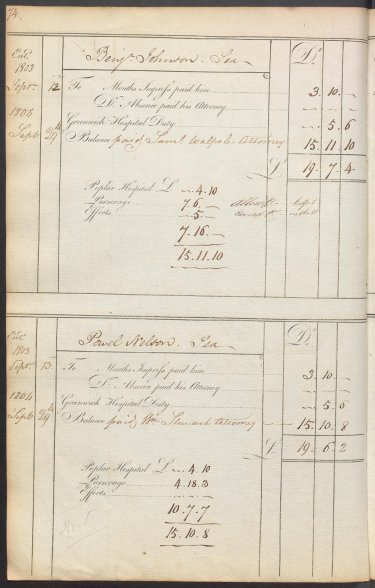 74.
Benjn Johnson. Sea
Dr
1803
Septr 12 To Months Imprest paid him 3. 10. —
Do Absence paid his Attorney — — —
1804
Greenwich Hospital Duty — 5. 6
Septr 29th Balance paid Saml Walpole Attorney 15. 11. 10
£ 19. 7. 4
Poplar Hospital £ —. 4. 10
Pursarage 7. 6. —
Effects — 5. —
7. 16. —
15. 11. 10
Powel Nelson. Sea
Dr
1803
Septr 13 To Months Imprest paid him 3. 10. —
Do Absence paid his Attorney — — —
1804
Greenwich Hospital Duty — 5. 6
Septr 29th Balance paid Wm Stewart Attorney 15. 10. 8
£ 19. 6. 2
Poplar Hospital £ —. 4. 10
Pursarage 4. 18. 3
Effects
10. 7. 7
15. 10. 8